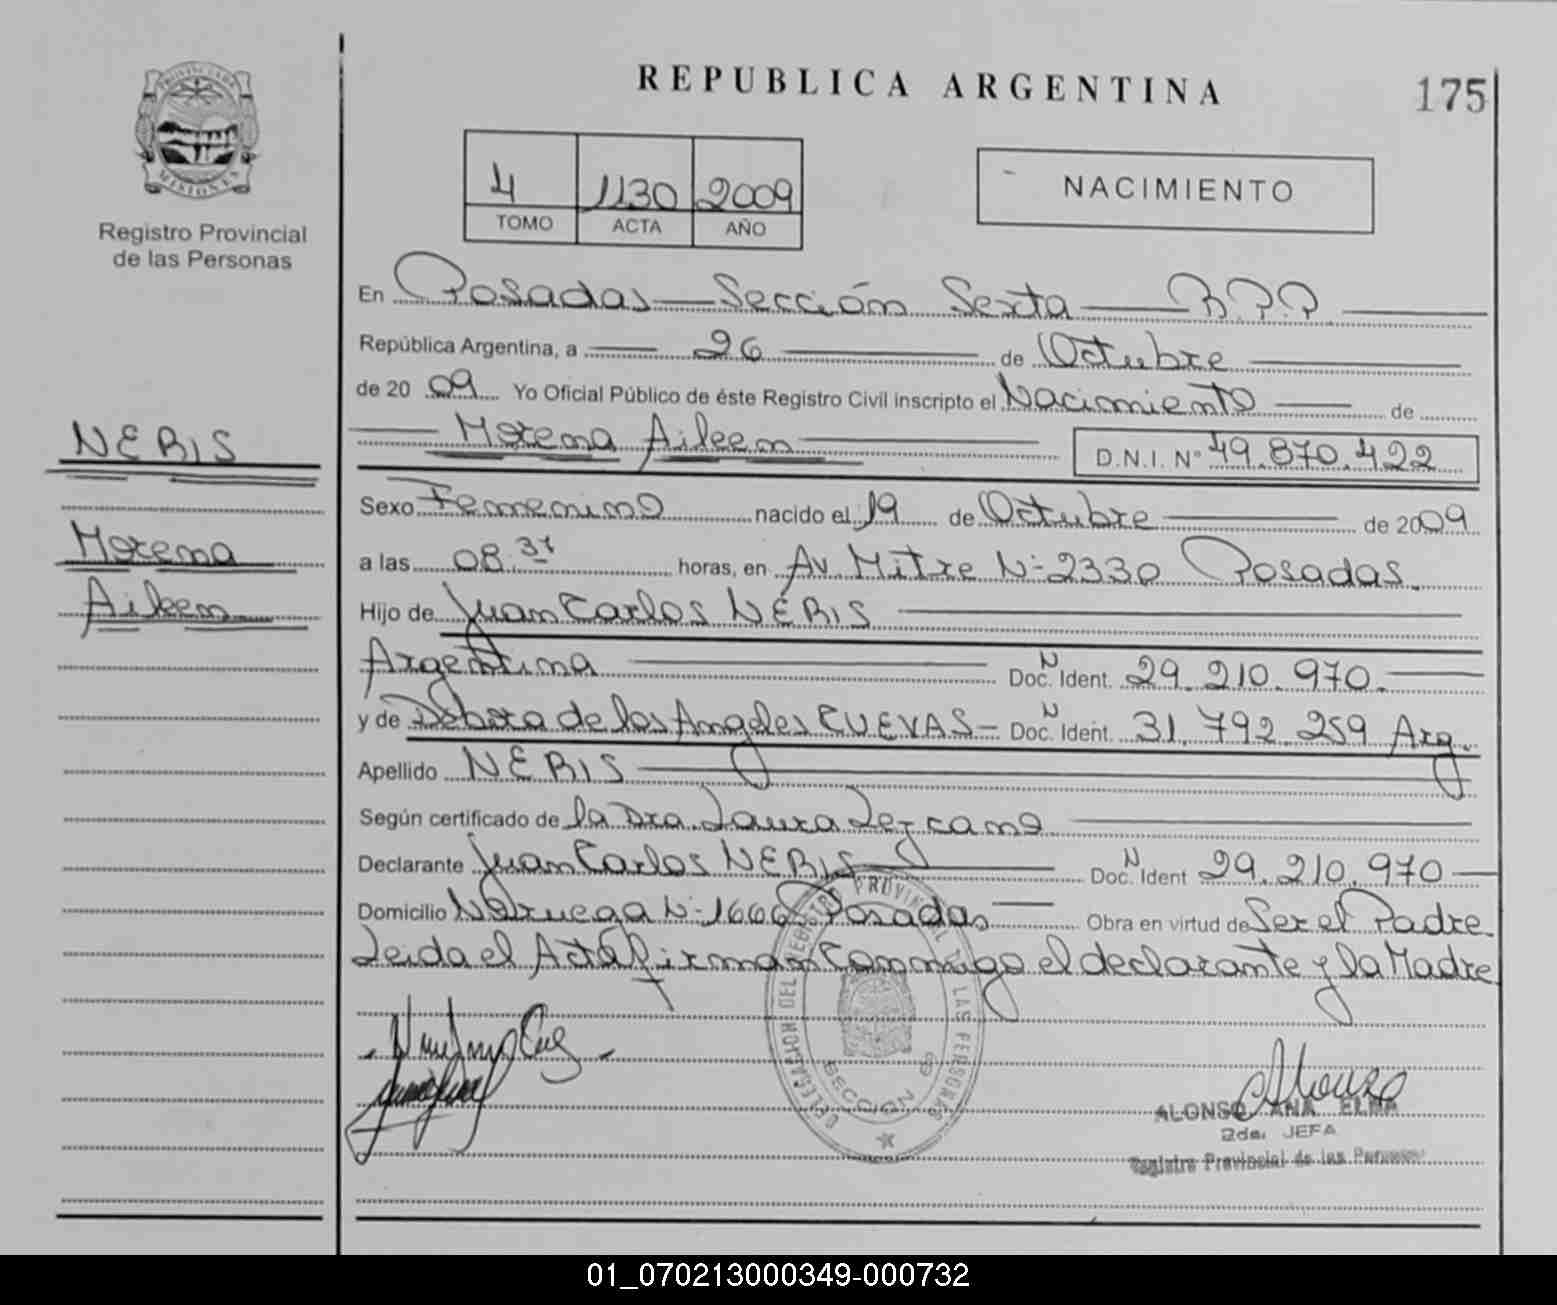 REPUBLICA ARGENTINA
175
PROVINCIA DE
MISIONES
Registro Provincial
de las Personas
4 1130 2009
TOMO ACTA AÑO
NACIMIENTO
En Posadas Sección Sexta R.P.P.
República Argentina, a 26 de Octubre
de 2009 Yo Oficial Público de éste Registro Civil inscripto el Nacimiento de
Morena Aileen D.N.I. N° 49.870.422
Sexo Femenino nacido el 19 de Octubre de 2009
a las 08:31 horas, en Av. Mitre N- 2330 Posadas.
Hijo de Juan Carlos NERIS
Argentina Doc. N Ident. 29.210.970.
y de Débora de los Angeles CUEVAS - Doc. N Ident. 31.792.259 Arg.
Apellido NERIS
Según certificado de la Dra. Laura Lezcano
Declarante Juan Carlos NERIS Doc. N Ident 29.210.970
Domicilio Noruega N- 1666 Posadas Obra en virtud de Ser el Padre
Leida el Acta firman conmigo el declarante y la Madre
NERIS
Morena
Aileen
DELEGACION DEL REGISTRO PROVINCIAL DE LAS PERSONAS
SECCION 6a
ALONSO ANA ELMA
2da. JEFA
Registro Provincial de las Personas
01_070213000349-000732